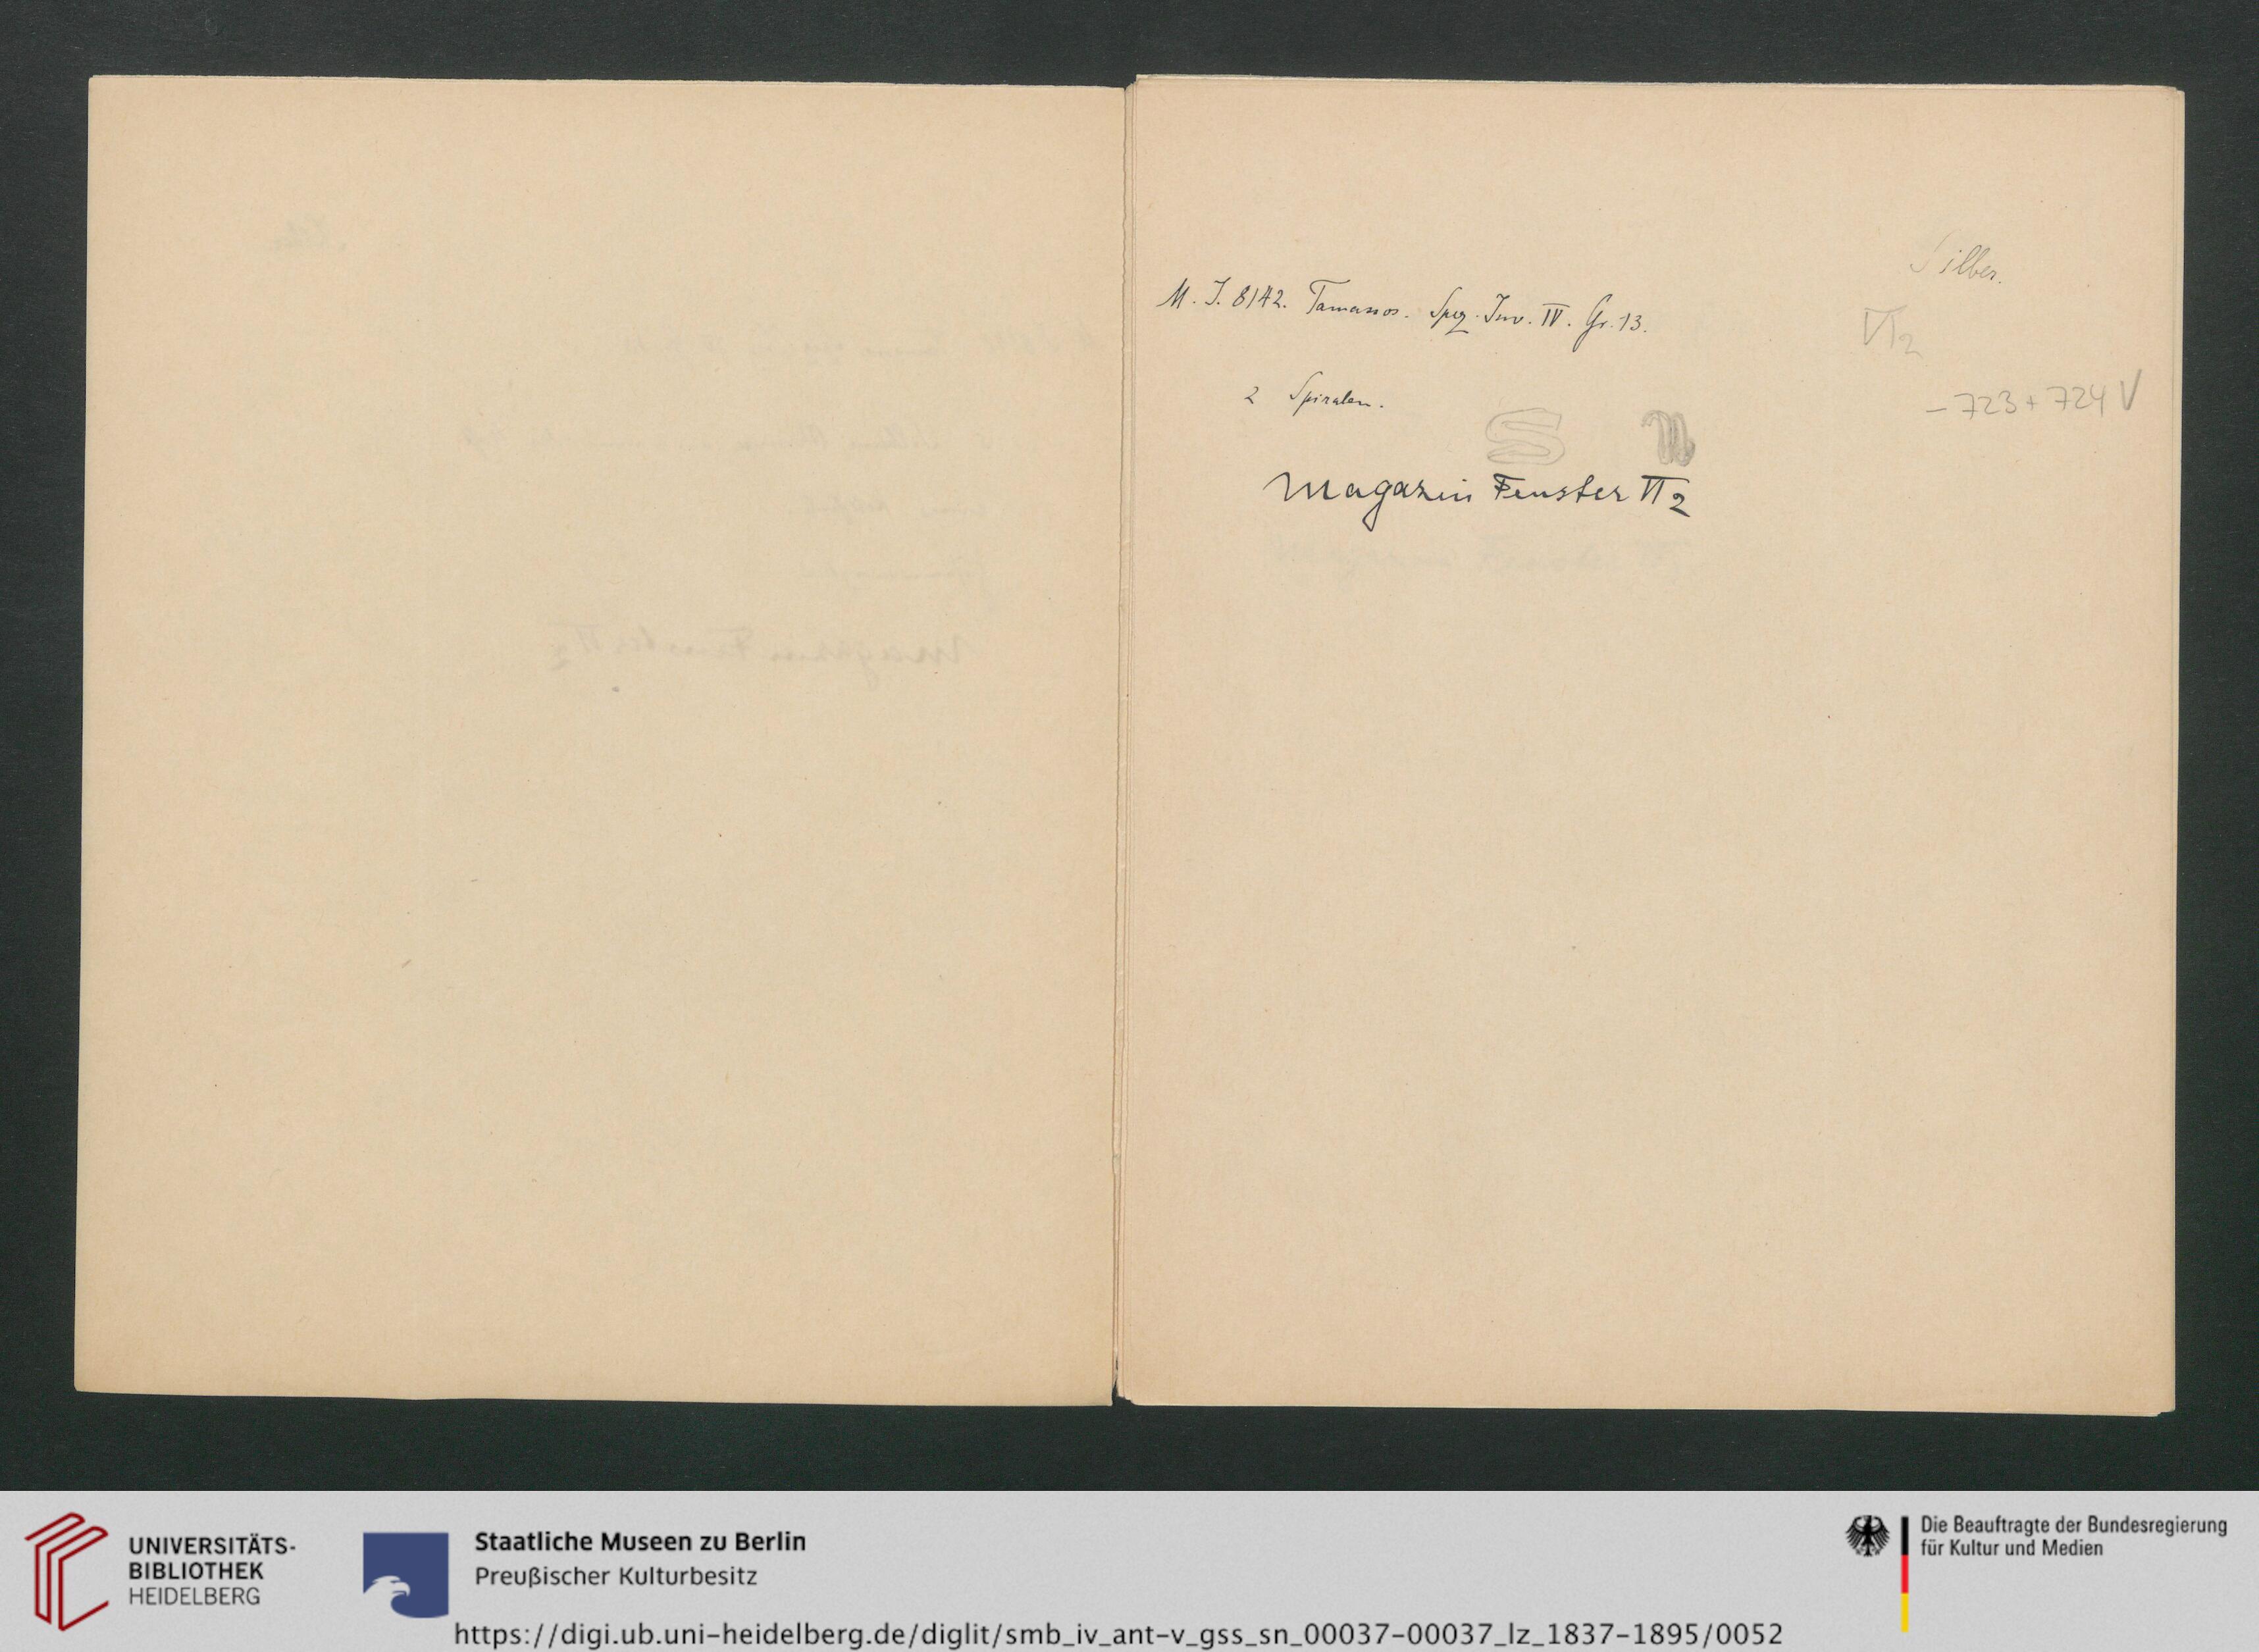 Silber.
M. J. 8142. Tamassos. Spez. Inv. IV. Gr. 13.
VI 2
2 Spiralen.
– 723 + 724 V
Magazin Fenster VI 2
UNIVERSITÄTS-
BIBLIOTHEK
HEIDELBERG
Staatliche Museen zu Berlin
Preußischer Kulturbesitz
Die Beauftragte der Bundesregierung
für Kultur und Medien
https://digi.ub.uni-heidelberg.de/diglit/smb_iv_ant-v_gss_sn_00037-00037_lz_1837-1895/0052